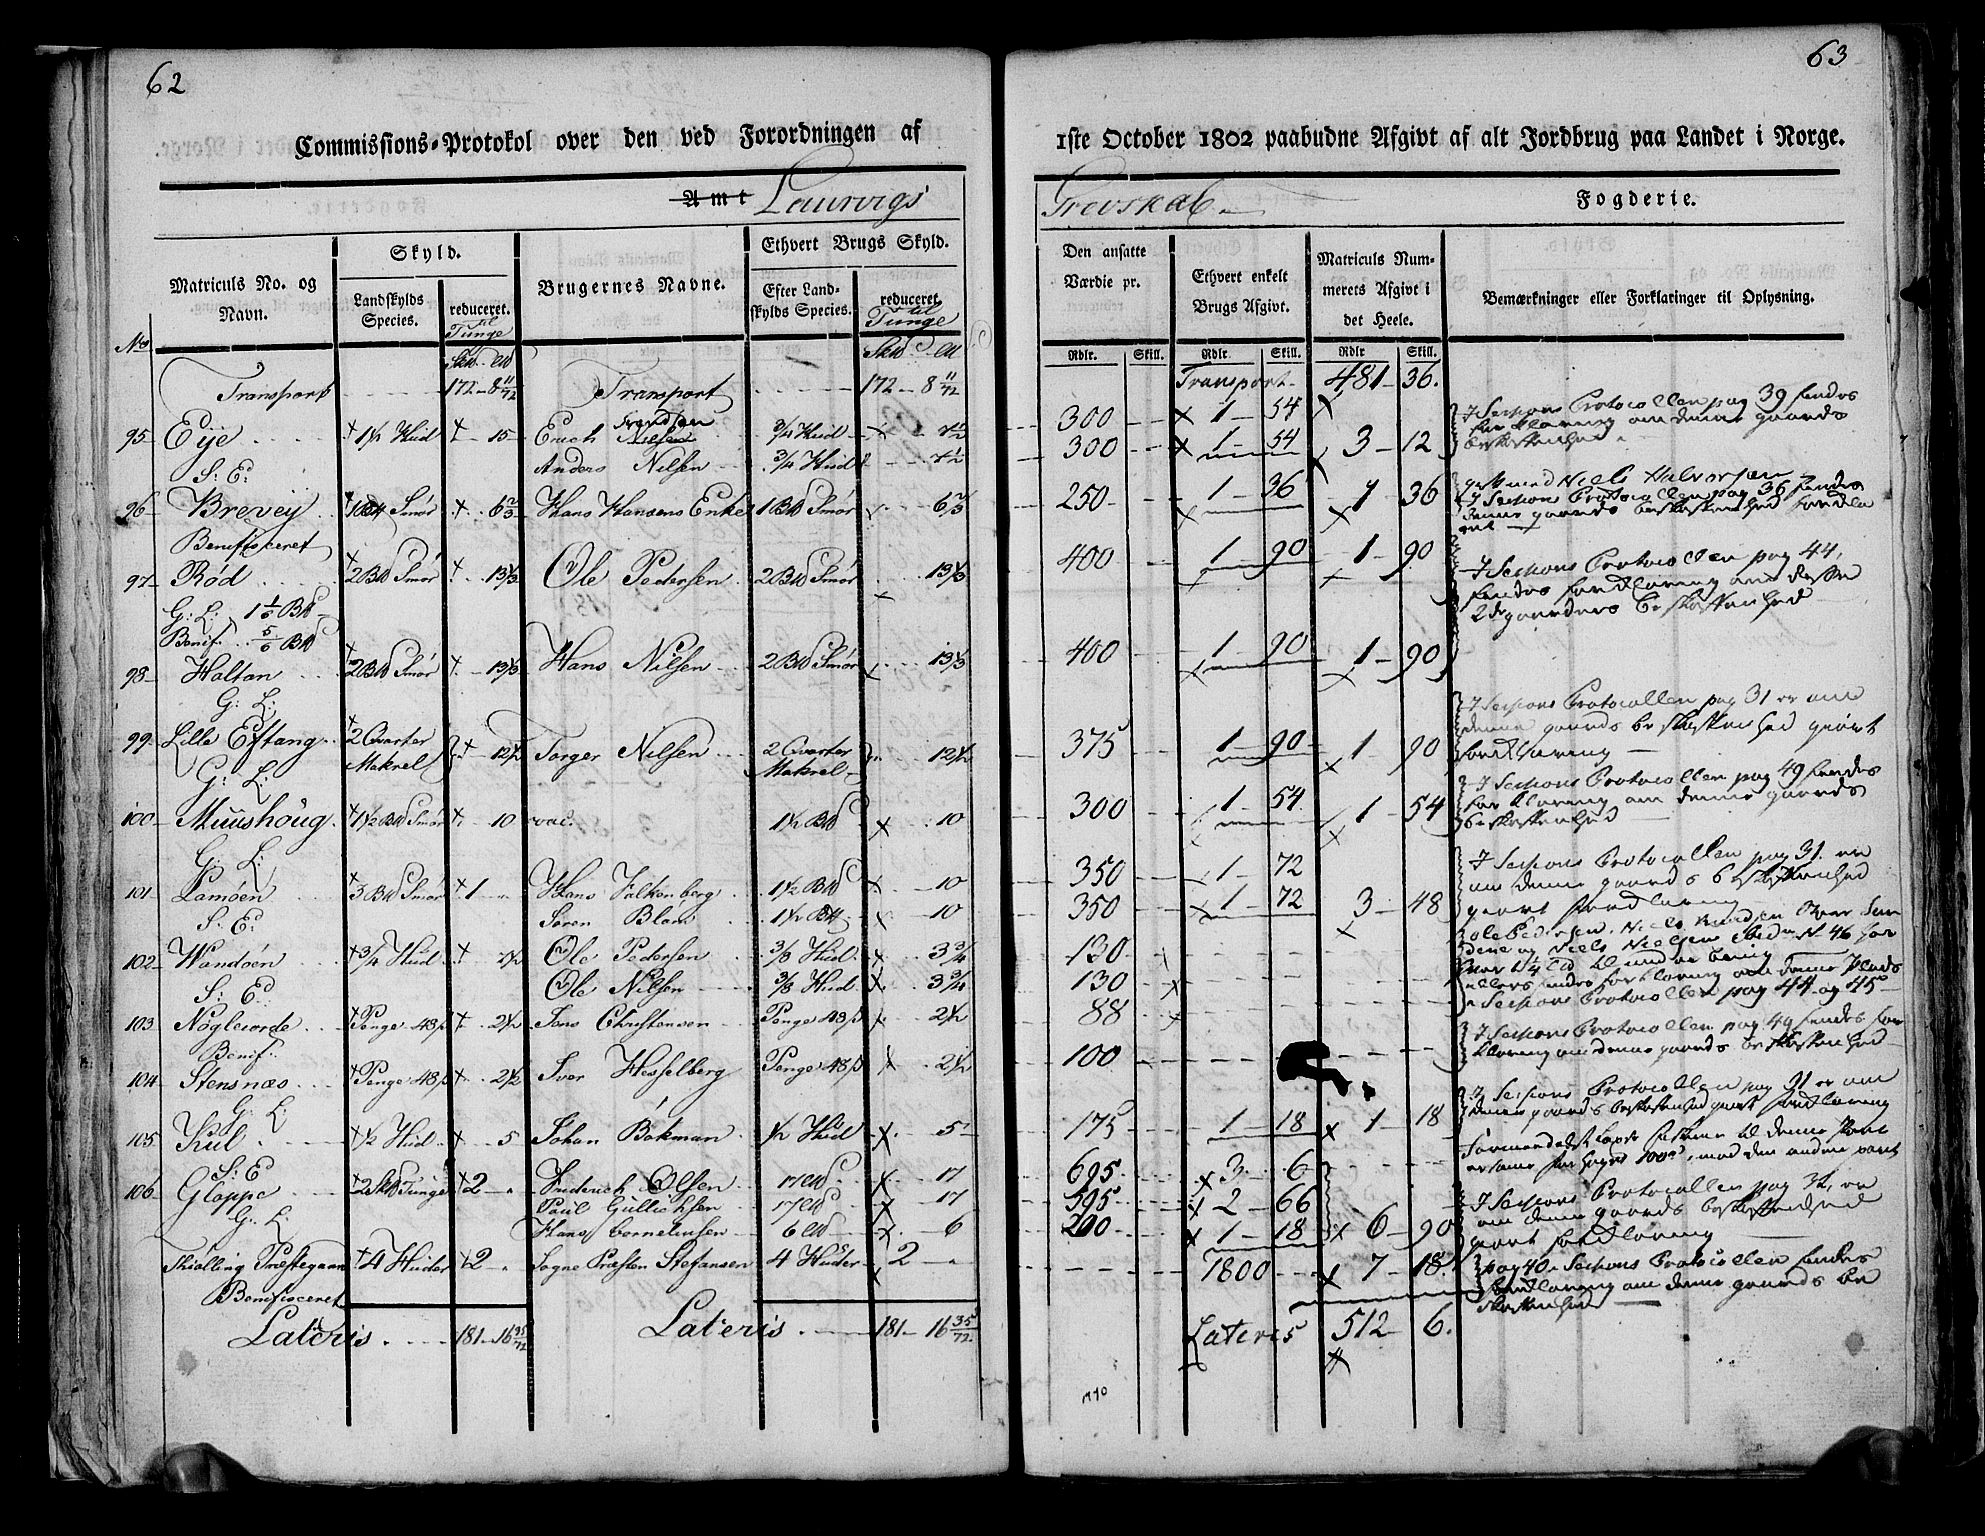 62
Commissions-Protokol over den ved Forordningen af
Amt Laurvigs
Matriculs No. og Navn.
Skyld.
Landskylds Species.
reduceret. til Tunge
Brugernes Navne.
Ethvert Brugs Skyld.
Efter Landskylds Species.
reduceret til Tunge
No
Transport 172 - 8 11/72 Transport 172 - 8 11/72
95 Eÿe 1 1/2 Hud 15 Erich Nilsen 3/4 Hud 7 1/2
S: E: Anders Nilsen 3/4 Hud 7 1/2
96 Brevey Smør 6 2/3 Hans Hansens Enke 1 Smør 6 2/3
Benificeret
97 Rød 2 Smør 13 1/3 Ole Pedersen 2 Smør 13 1/3
G: L: 1 1/6
Benif. 5/6
98 Haltan 2 Smør 13 1/3 Hans Nilsen 2 Smør 13 1/3
G: L:
99 Lille Eftang 2 Qvarter Makrel 12 1/2 Torger Nilsen 2 Qvarter Makrel 12 1/2
G: L:
100 Muushoug 1 1/2 Smør 10 vac. 1 1/2 10
G: L:
101 Lamøen 3 Smør 1 Hans Falkenberg 1 1/2 10
S: E: Søren 1 1/2 10
102 Wandøen 3/4 Hud 7 1/2 Ole Pedersen 3/8 Hud 3 3/4
S: E: Ole Nilsen 3/8 Hud 3 3/4
103 Nøgleiorde Penge 48 β 2 1/2 Jens Christensen Penge 48 β 2 1/2
Benif:
104 Stensnæs Penge 48 β 2 1/2 Iver Hesselberg Penge 48 β 2 1/2
G: L:
105 Kiil 1/2 Hud 5 Johan Bøkman 1/2 Hud 5
S: E
106 Gloppe 2 Tunge 2 Friderich Olsen 17 17
G: L: Paul Gullichsen 17 17
Hans Corneliusen 6 6
Thiølling Præstegaan 4 Huder 2 Sogne Præsten Stefansen 4 Huder 2
Benificeret
Lateris 181 - 16 35/72 Lateris 181 - 16 35/72
63
1ste October 1802 paabudne Afgivt af alt Jordbrug paa Landet i Norge.
Grevskab Fogderie.
Den ansatte Værdie pr.
Ethvert enkelt Brugs Afgivt.
Matriculs Nummerets Afgivt i det Heele.
Bemærkninger eller Forklaringer til Oplysning.
Rdlr. Skill. Rdlr. Skill. Rdlr Skill.
Transport 481 - 36.
300 1 - 54
300 1 - 54 3 - 12
250 1 - 36 1 - 36
400 1 - 90 1 - 90
400 1 - 90 1 - 90
375 1 - 90 1 - 90
300 1 - 54 1 - 54
350 1 - 72
350 1 - 72 3 - 48
130
130
88
100
175 1 - 18 1 - 18
695 3 - 6
595 2 - 66
200 1 - 18 6 - 90
1800 7 - 18
Lateris 512 - 6.
I Sessions Protocollen pag 39 findes
forklaring om denne gaards
beskaffenhed
Niels Halvorsen
I Sessions Protocollen pag 36 findes
denne gaards beskaffenhed
I Sessions Protocollen pag 44,
findes forklaring om disse
2de gaarders beskaffenhed
I Sessions Protocollen pag 31 er om
denne gaards beskaffenhed giort
forklaring
I Sessions Protocollen pag 49 findes
forklaring om denne gaards
beskaffenhed
I Sessions Protocollen pag 31 er
om denne gaards beskaffenhed
giort forklaring
Niels Nielsen No 46
forklaring om denne Plads
Sessions Protocollen pag 44 og 45
I Sessions Protocollen pag 49 findes for
klaring om denne gaards beskaffenhed
I Sessions Protocollen pag 31 er om
denne gaards beskaffenhed giort forklaring
I Sessions Protocollen pag 32, er
om denne gaards beskaffenhed
giort forklaring
pag 40 Sessions Protocollen findes
forklaring om denne gaards be
skaffenhed